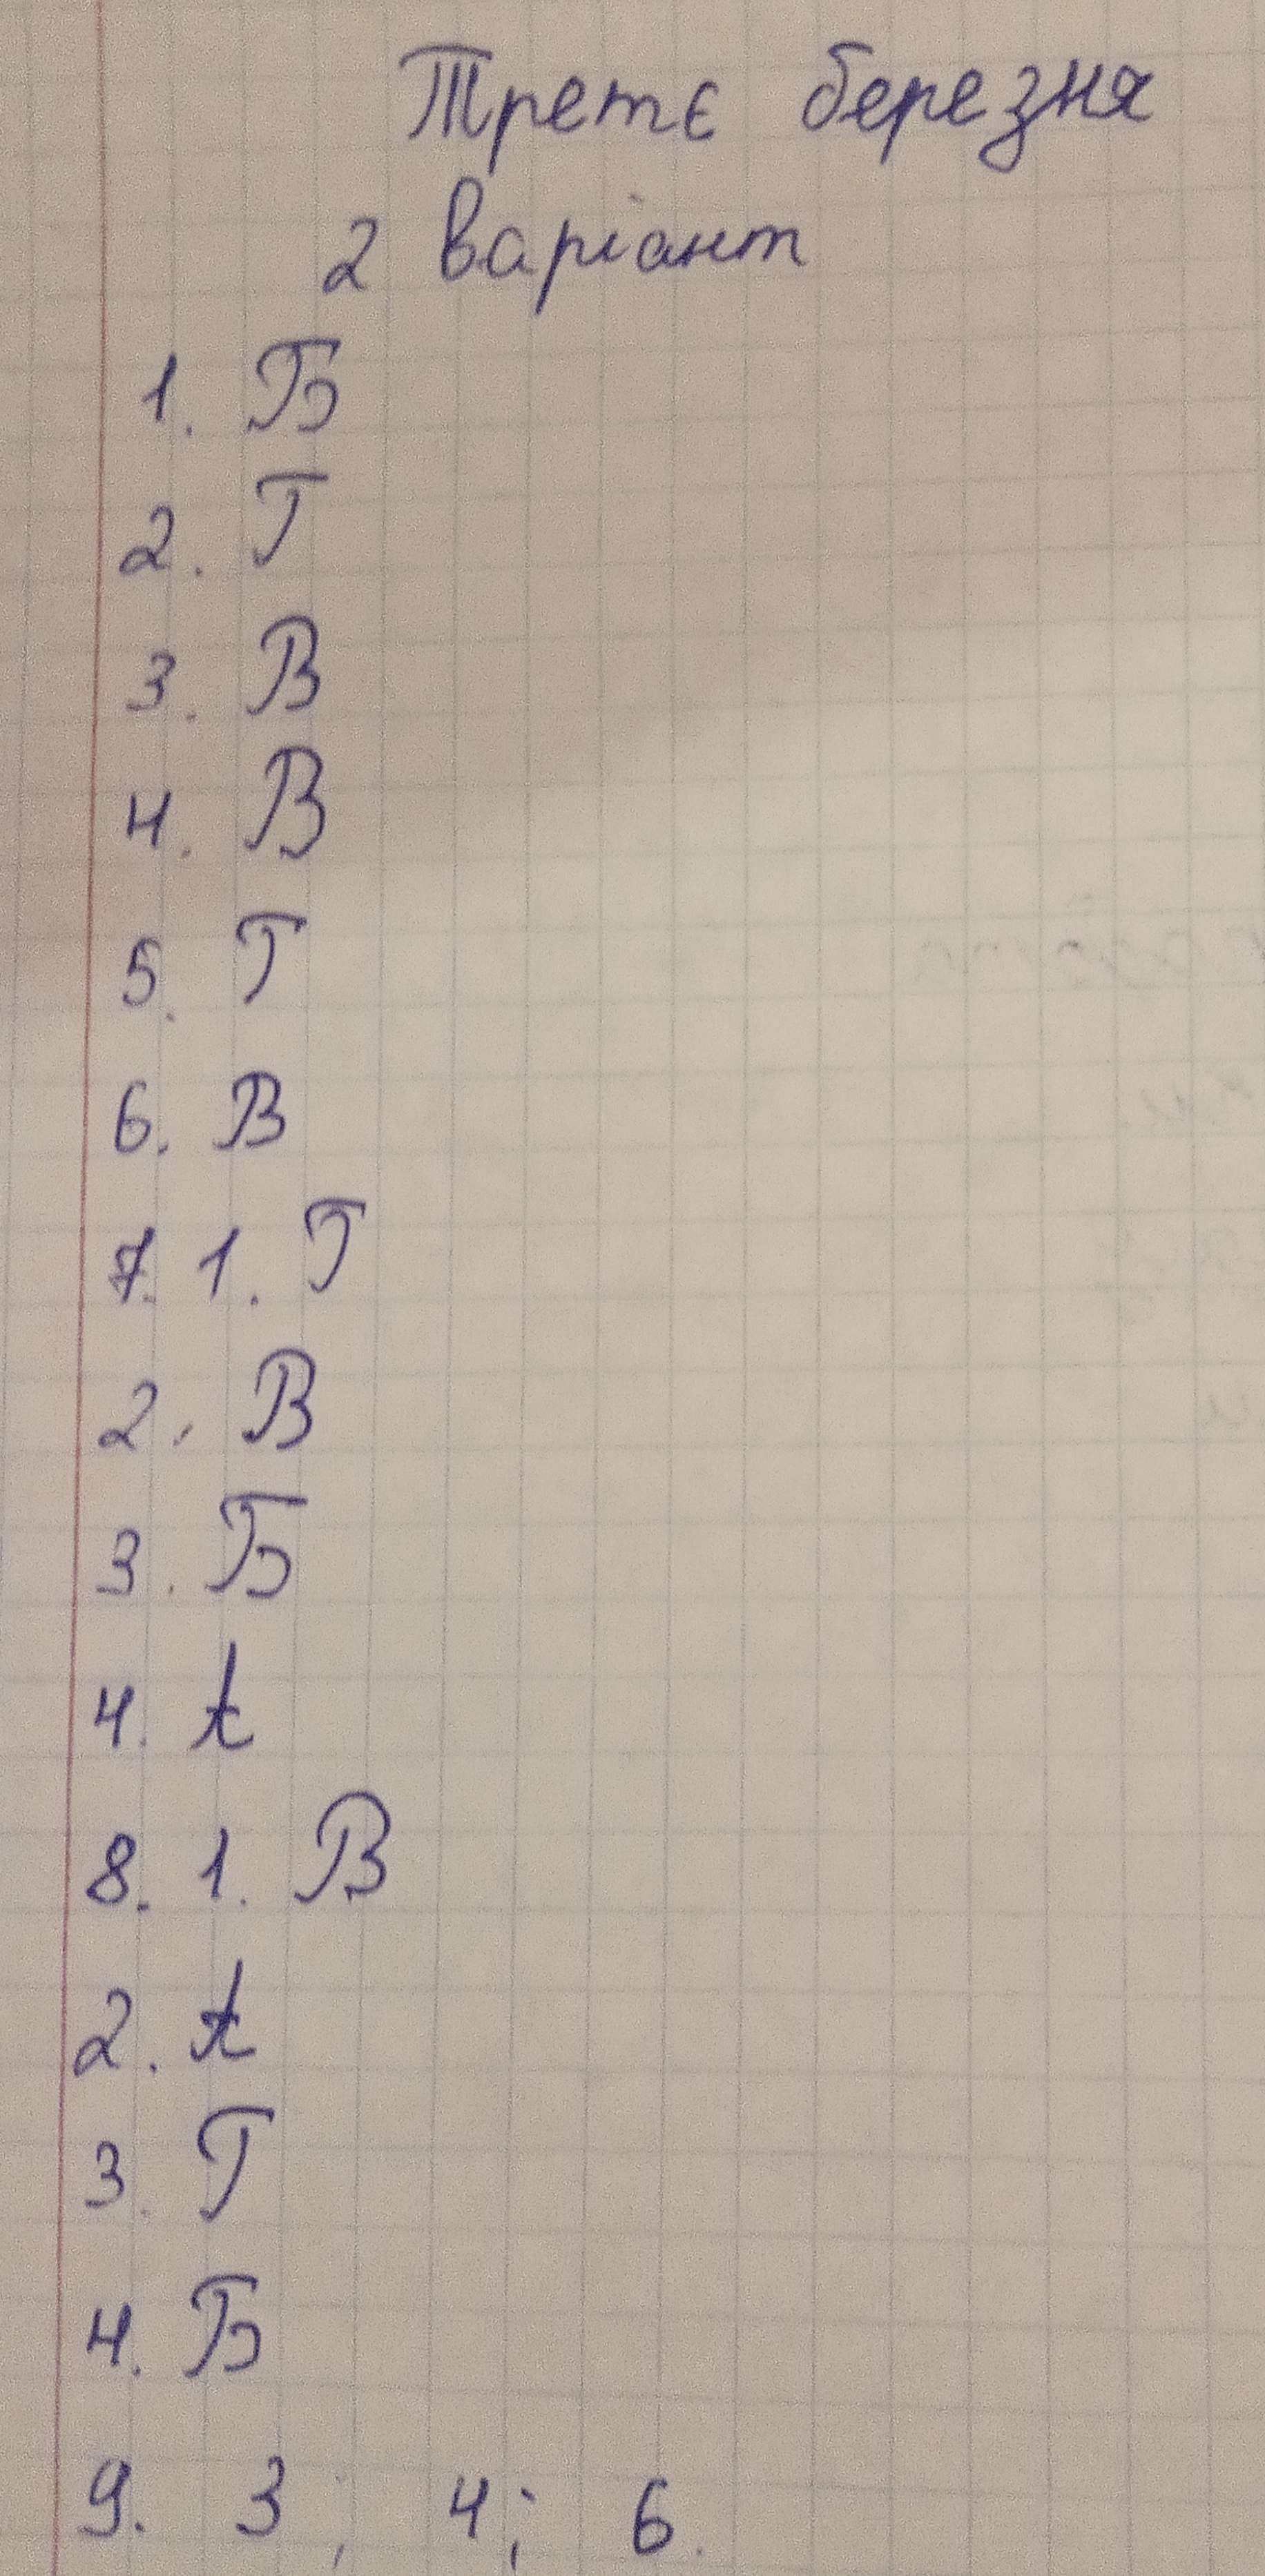 Третє березня
2 варіант
1. Б
2. Г
3. В
4. В
5. Г
6. В
7. 1. Г
2. В
3. Б
4. А
8. 1. В
2. А
3. Г
4. Б
9. 3; 4; 6.